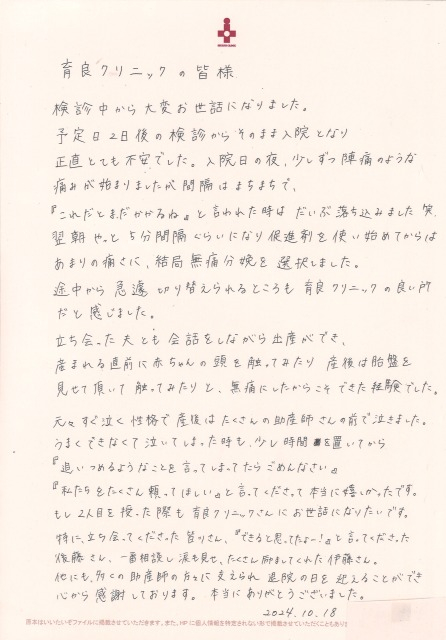 育良クリニックの皆様
検診中から大変お世話になりました。
予定日2日後の検診からそのまま入院となり
正直とても不安でした。入院日の夜、少しずつ陣痛のような
痛みが始まりましたが間隔はまちまちで、
『これだとまだかかるね』と言われた時はだいぶ落ち込みました笑
翌朝やっと5分間隔ぐらいになり促進剤を使い始めてからは
あまりの痛さに、結局無痛分娩を選択しました。
途中から急遽切り替えられるところも育良クリニックの良い所
だと感じました。
立ち会った夫とも会話をしながら出産ができ、
産まれる直前に赤ちゃんの頭を触ってみたり産後は胎盤を
見せて頂いて触ってみたりと、無痛にしたからこそできた経験でした。
元々すぐ泣く性格で産後はたくさんの助産師さんの前で泣きました。
うまくできなくて泣いてしまった時も、少し時間を置いてから
『追いつめるようなことを言ってしまってたらごめんなさい』
『私たちをたくさん頼ってほしい』と言ってくださって本当に嬉しかったです。
もし2人目を授った際も育良クリニックさんにお世話になりたいです。
特に、立ち会ってくださった皆りさん、『できると思ってたよー!』と言ってくださった
後藤さん、一番相談し涙も見せ、たくさん励ましてくれた伊藤さん。
他にも、多くの助産師の方々に支えられ退院の日を迎えることができ
心から感謝しております。本当にありがとうございました。
2024.10.18
原本はいいたいぞファイルに掲載させていただきます。また、HPに個人情報を特定されない形で掲載させていただくこともあります